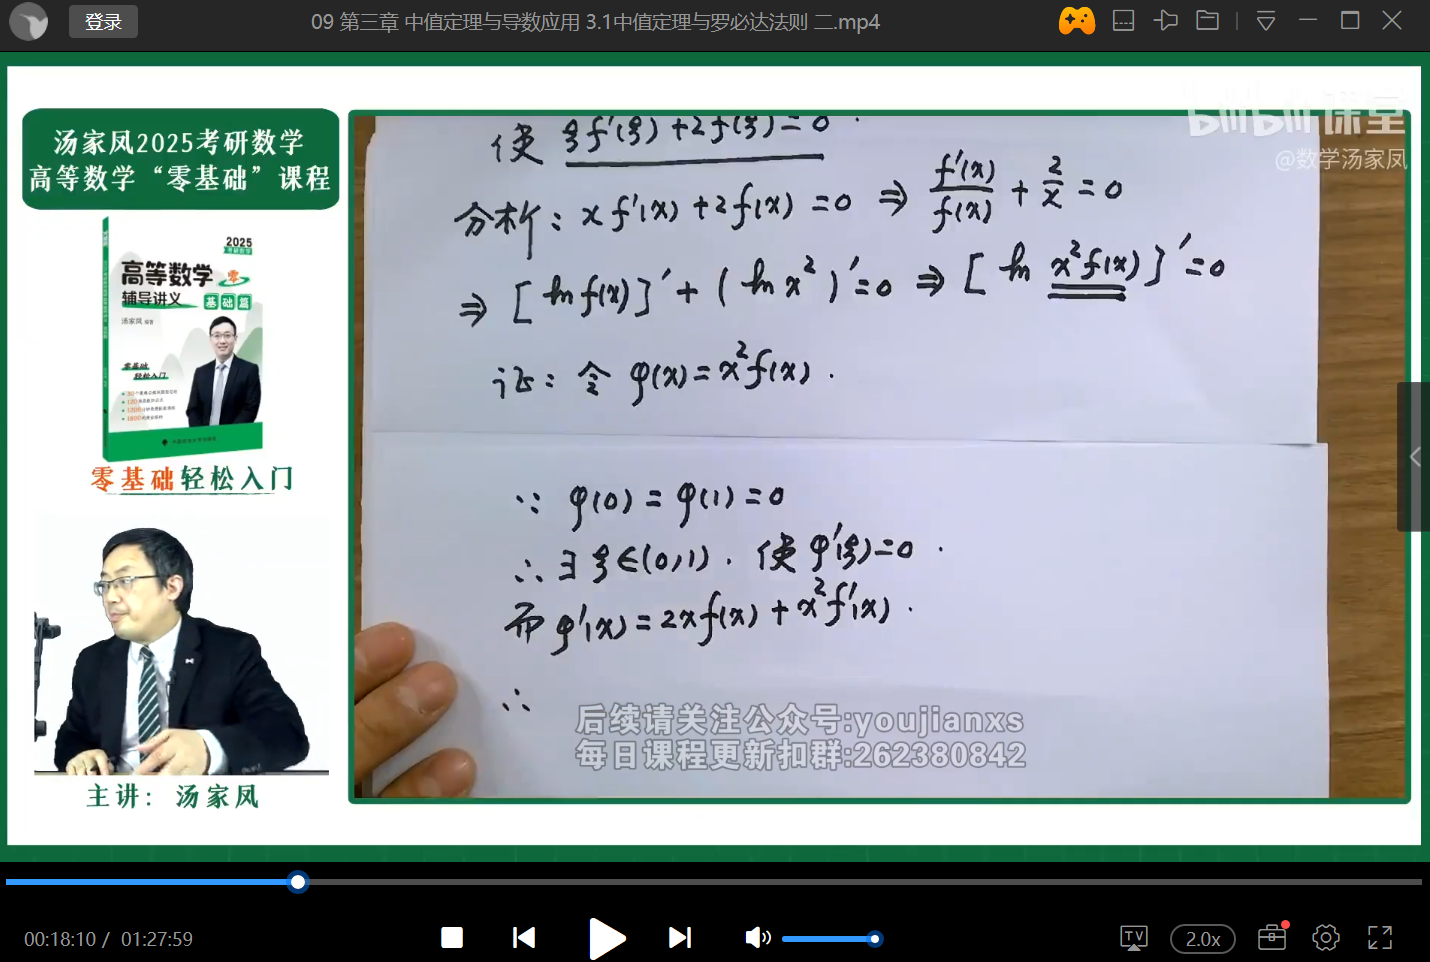 登录
09 第三章 中值定理与导数应用 3.1中值定理与罗必达法则 二.mp4
汤家凤2025考研数学
高等数学“零基础”课程
2025
高等数学
零
辅导讲义
基础篇
汤家凤 编著
零基础
轻松入门
零基础轻松入门
主讲：汤家凤
bilibili课堂
@数学汤家凤
使 ξf'(ξ)+2f(ξ)=0.
分析：xf'(x)+2f(x)=0 ⇒ f'(x)/f(x) + 2/x = 0
⇒ [ln f(x)]' + (ln x²)' = 0 ⇒ [ln x²f(x)]' = 0
证：令 φ(x)=x²f(x).
∵ φ(0)=φ(1)=0
∴ ∃ξ∈(0,1). 使 φ'(ξ)=0.
而 φ'(x)=2xf(x)+x²f'(x).
∴
后续请关注公众号:youjianxs
每日课程更新扣群:262380842
00:18:10 / 01:27:59
TV
2.0x